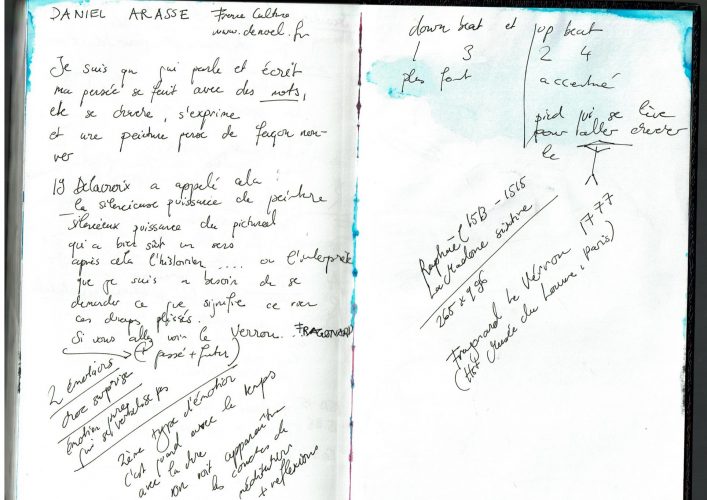 DANIEL ARASSE France Culture
www.denoel.fr
Je suis qn qui parle et écrit
ma pensée se fait avec des mots,
elle se cherche, s'exprime
et une peinture pense de façon non-
ver
19 Delacroix a appelé cela :
la silencieuse puissance de peinture
silencieux puissance du pictural
qui a bien sûr un sens
après cela l'historien .... ou l'interprète
que je suis a besoin de se
demander ce que signifie ce rien
ces draps plissés.
Si vous allez voir le Verrou. FRAGONARD
(+ passé + futur)
2 émotions
choc surprise
émotion
qui se verbalise pas
2ème type d'émotion
c'est quand avec le temps
avec la durée
on voit apparaître
les couches de
méditation
+ reflexions
down beat et up beat
1 3 2 4
plus fort accentué
pied qui se lève
pour aller
le
Raphaël 1513 - 1515
La Madone sixtine
265 x 196
Fragonard Le Verrou 1777
(Musée du Louvre, Paris)